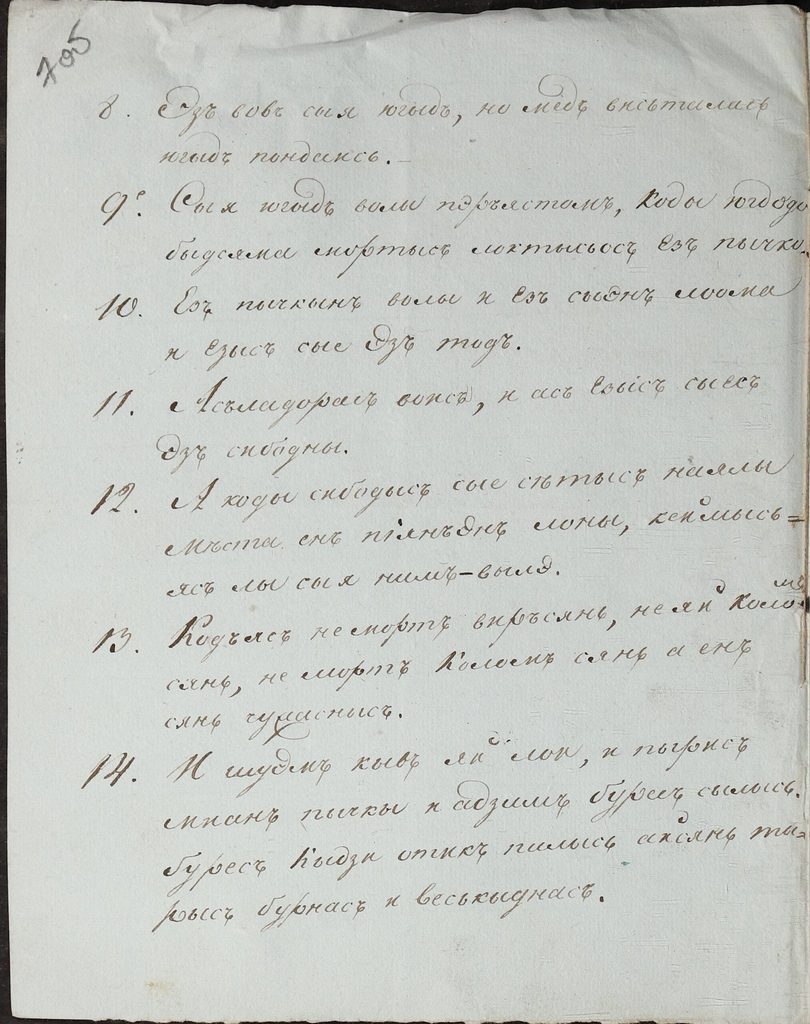 705
8. Эзъ вовъ сыя югыдъ, но медъ висьталасъ
югыдъ пондаись.
9. Сыя югыдъ волы перъястомъ, коды югдэдэ
быдсяма мортысъ локтысьосъ Езъ пычкэ.
10. Езъ пычкынъ волы и Езъ сыэнъ лоома
и Езысъ сые Эзъ тодъ.
11. Асъладорасъ воисъ, и асъ Езысъ сыесъ
Эзъ сибодны.
12. А коды сибодысъ сые сѣтысъ наялы
мѣста енъ піянъэнъ лоны, кепмысь=
ясъ лы сыя нимъ-вылэ.
13. Кодъясъ не мортъ виръсянь, не яй коломъ
сянь, не мортъ коломъ сянь а енъ
сянь чужисныс.
14. И шуэмъ кывъ яй лои, и пырисъ
миянъ пычкы и адзимъ бурсъ сылысь.
буресъ кыдзи отикъ пилысь айсянь ты=
рысъ бурнасъ и веськыднасъ.